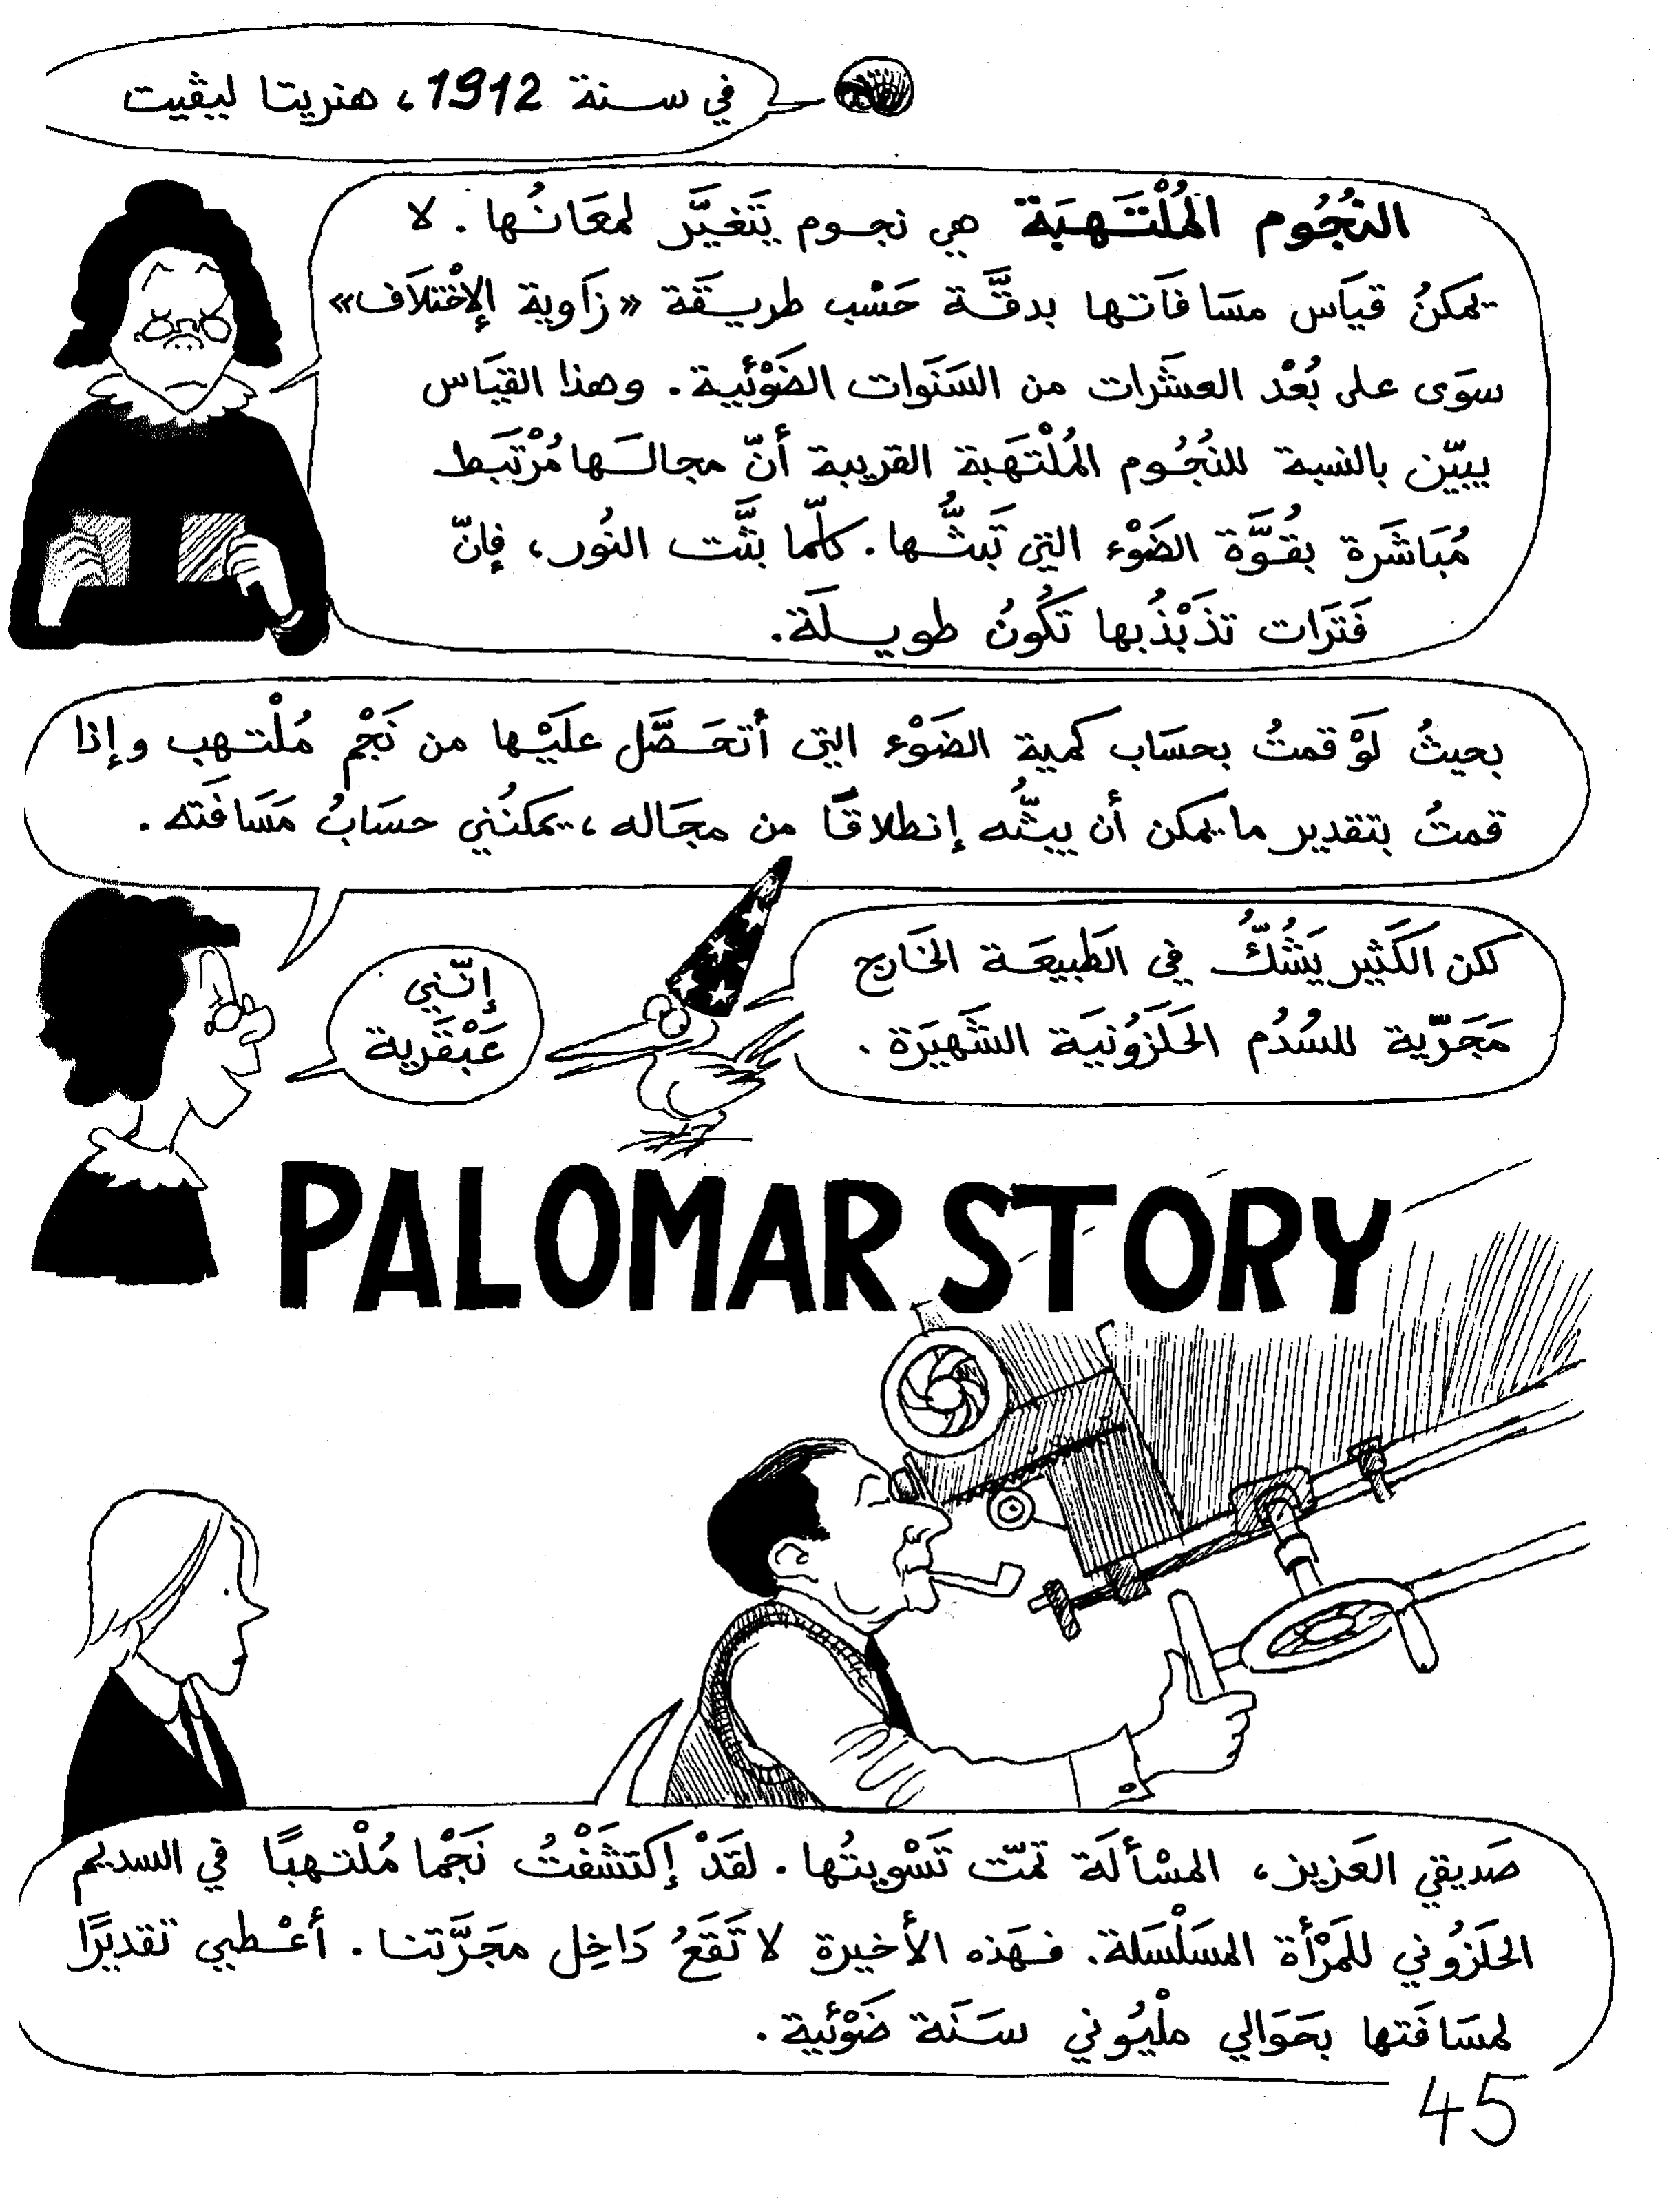 في سنة 1912، هنريتا ليڤيت
النُجُوم المُلْتَهِبَة هي نجوم يَتَغيَّر لمعَانُها. لا
يمكنُ قياَس مسَافَاتها بدقَّة حَسْب طريقَة «زَاوية الإخْتلاَف»
سوَى على بُعْد العشَرات من السَنَوات الضَوْئية. وهذا القيَاس
يبيّن بالنسبة للنُجُوم المُلْتهَبة القريبة أنّ مجالَها مُرْتَبَط
مُبَاشَرة بقُوَّة الضَوْء التي تَبثُّها. كلّما بثَّت النُور، فإنّ
فَتَرَات تذَبْذُبها تَكُونُ طويلَة.
بحيثُ لَوْ قمتُ بحسَاب كمية الضَوْء التي أتحَصَّل علَيْها من نَجْم مُلْتهب وإذا
قمتُ بتقدير ما يمكن أن يبثُّه إنطلاقًا من مجَاله، يمكنُني حسَابُ مَسَافَته.
لكن الكَثير يَشُكُّ في الطَبيعَة الخَارج
مَجَرّية للسُدُم الحَلَزُونيَة الشَهيَرة.
إنّني
عَبْقَرية
PALOMAR STORY
صَديقي العَزيز، المسْألَة تمّت تَسْويتُها. لقَدْ إكتشَفْتُ نَجْما مُلْتهبًا في السديم
الحلَزُوني للمَرْأة المسَلْسَلة. فهَذه الأخيرة لا تَقَعُ دَاخِل مجَرَّتنا. أعْطي تقديرًا
لمسَافَتها بحَوَالي ملْيُوني سَنَة ضَوْئية.
45